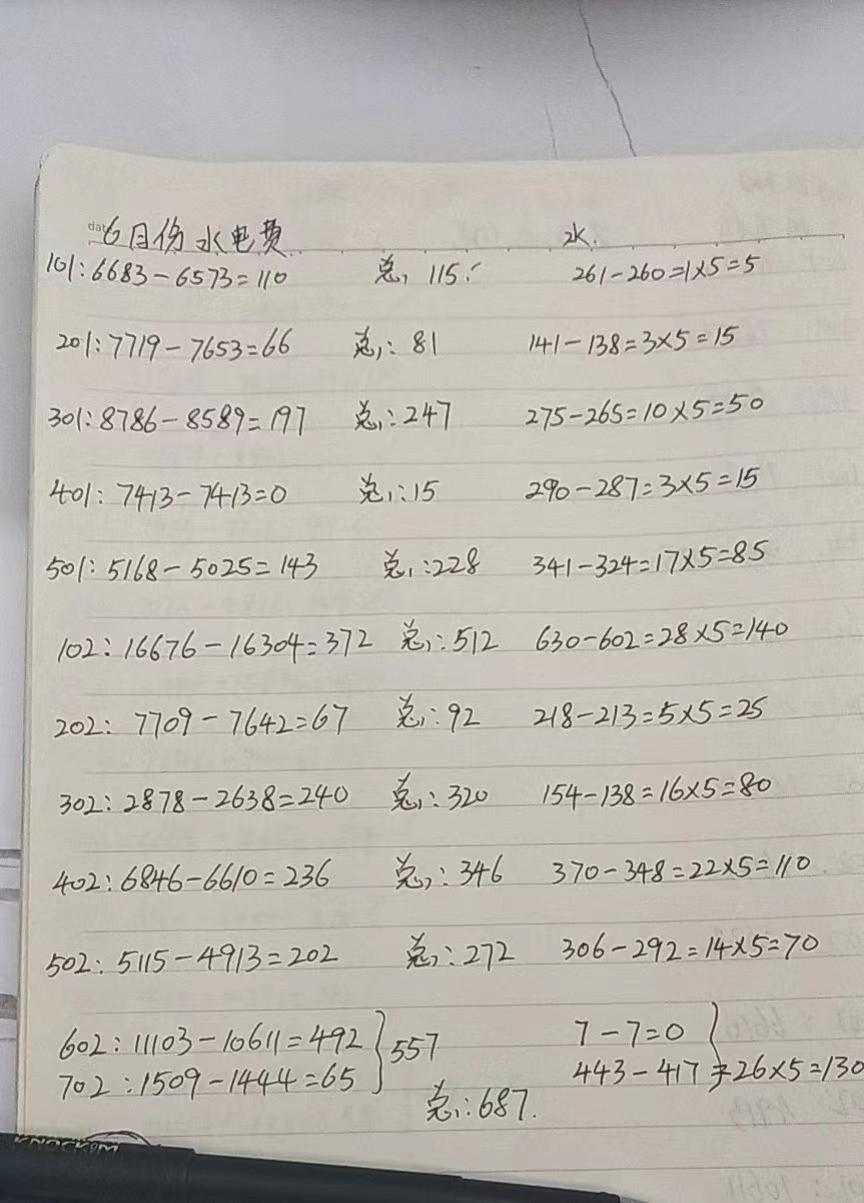 dat
6月份水电费 水.
101:6683-6573=110 总, 115: 261-260=1×5=5
201:7719-7653=66 总,: 81 141-138=3×5=15
301:8786-8589=197 总,:247 275-265=10×5=50
401:7413-7413=0 总,:15 290-287=3×5=15
501:5168-5025=143 总,:228 341-324=17×5=85
102:16676-16304=372 总,:512 630-602=28×5=140
202:7709-7642=67 总,:92 218-213=5×5=25
302:2878-2638=240 总,:320 154-138=16×5=80
402:6846-6610=236 总,:346 370-348=22×5=110.
502:5115-4913=202 总,:272 306-292=14×5=70
602:11103-10611=492 } 557 7-7=0 }
702:1509-1444=65 443-417=26×5=130
总,:687.
KNOCK